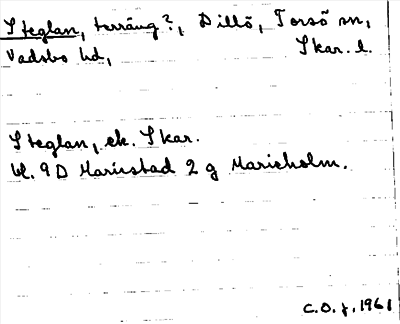 Steglan, terräng?, Dillö, Torsö sn,
Vadsbo hd, Skar. l.
Steglan, ek. Skar.
bl. 9 D Mariestad 2 g Marieholm.
C.O. f, 1961